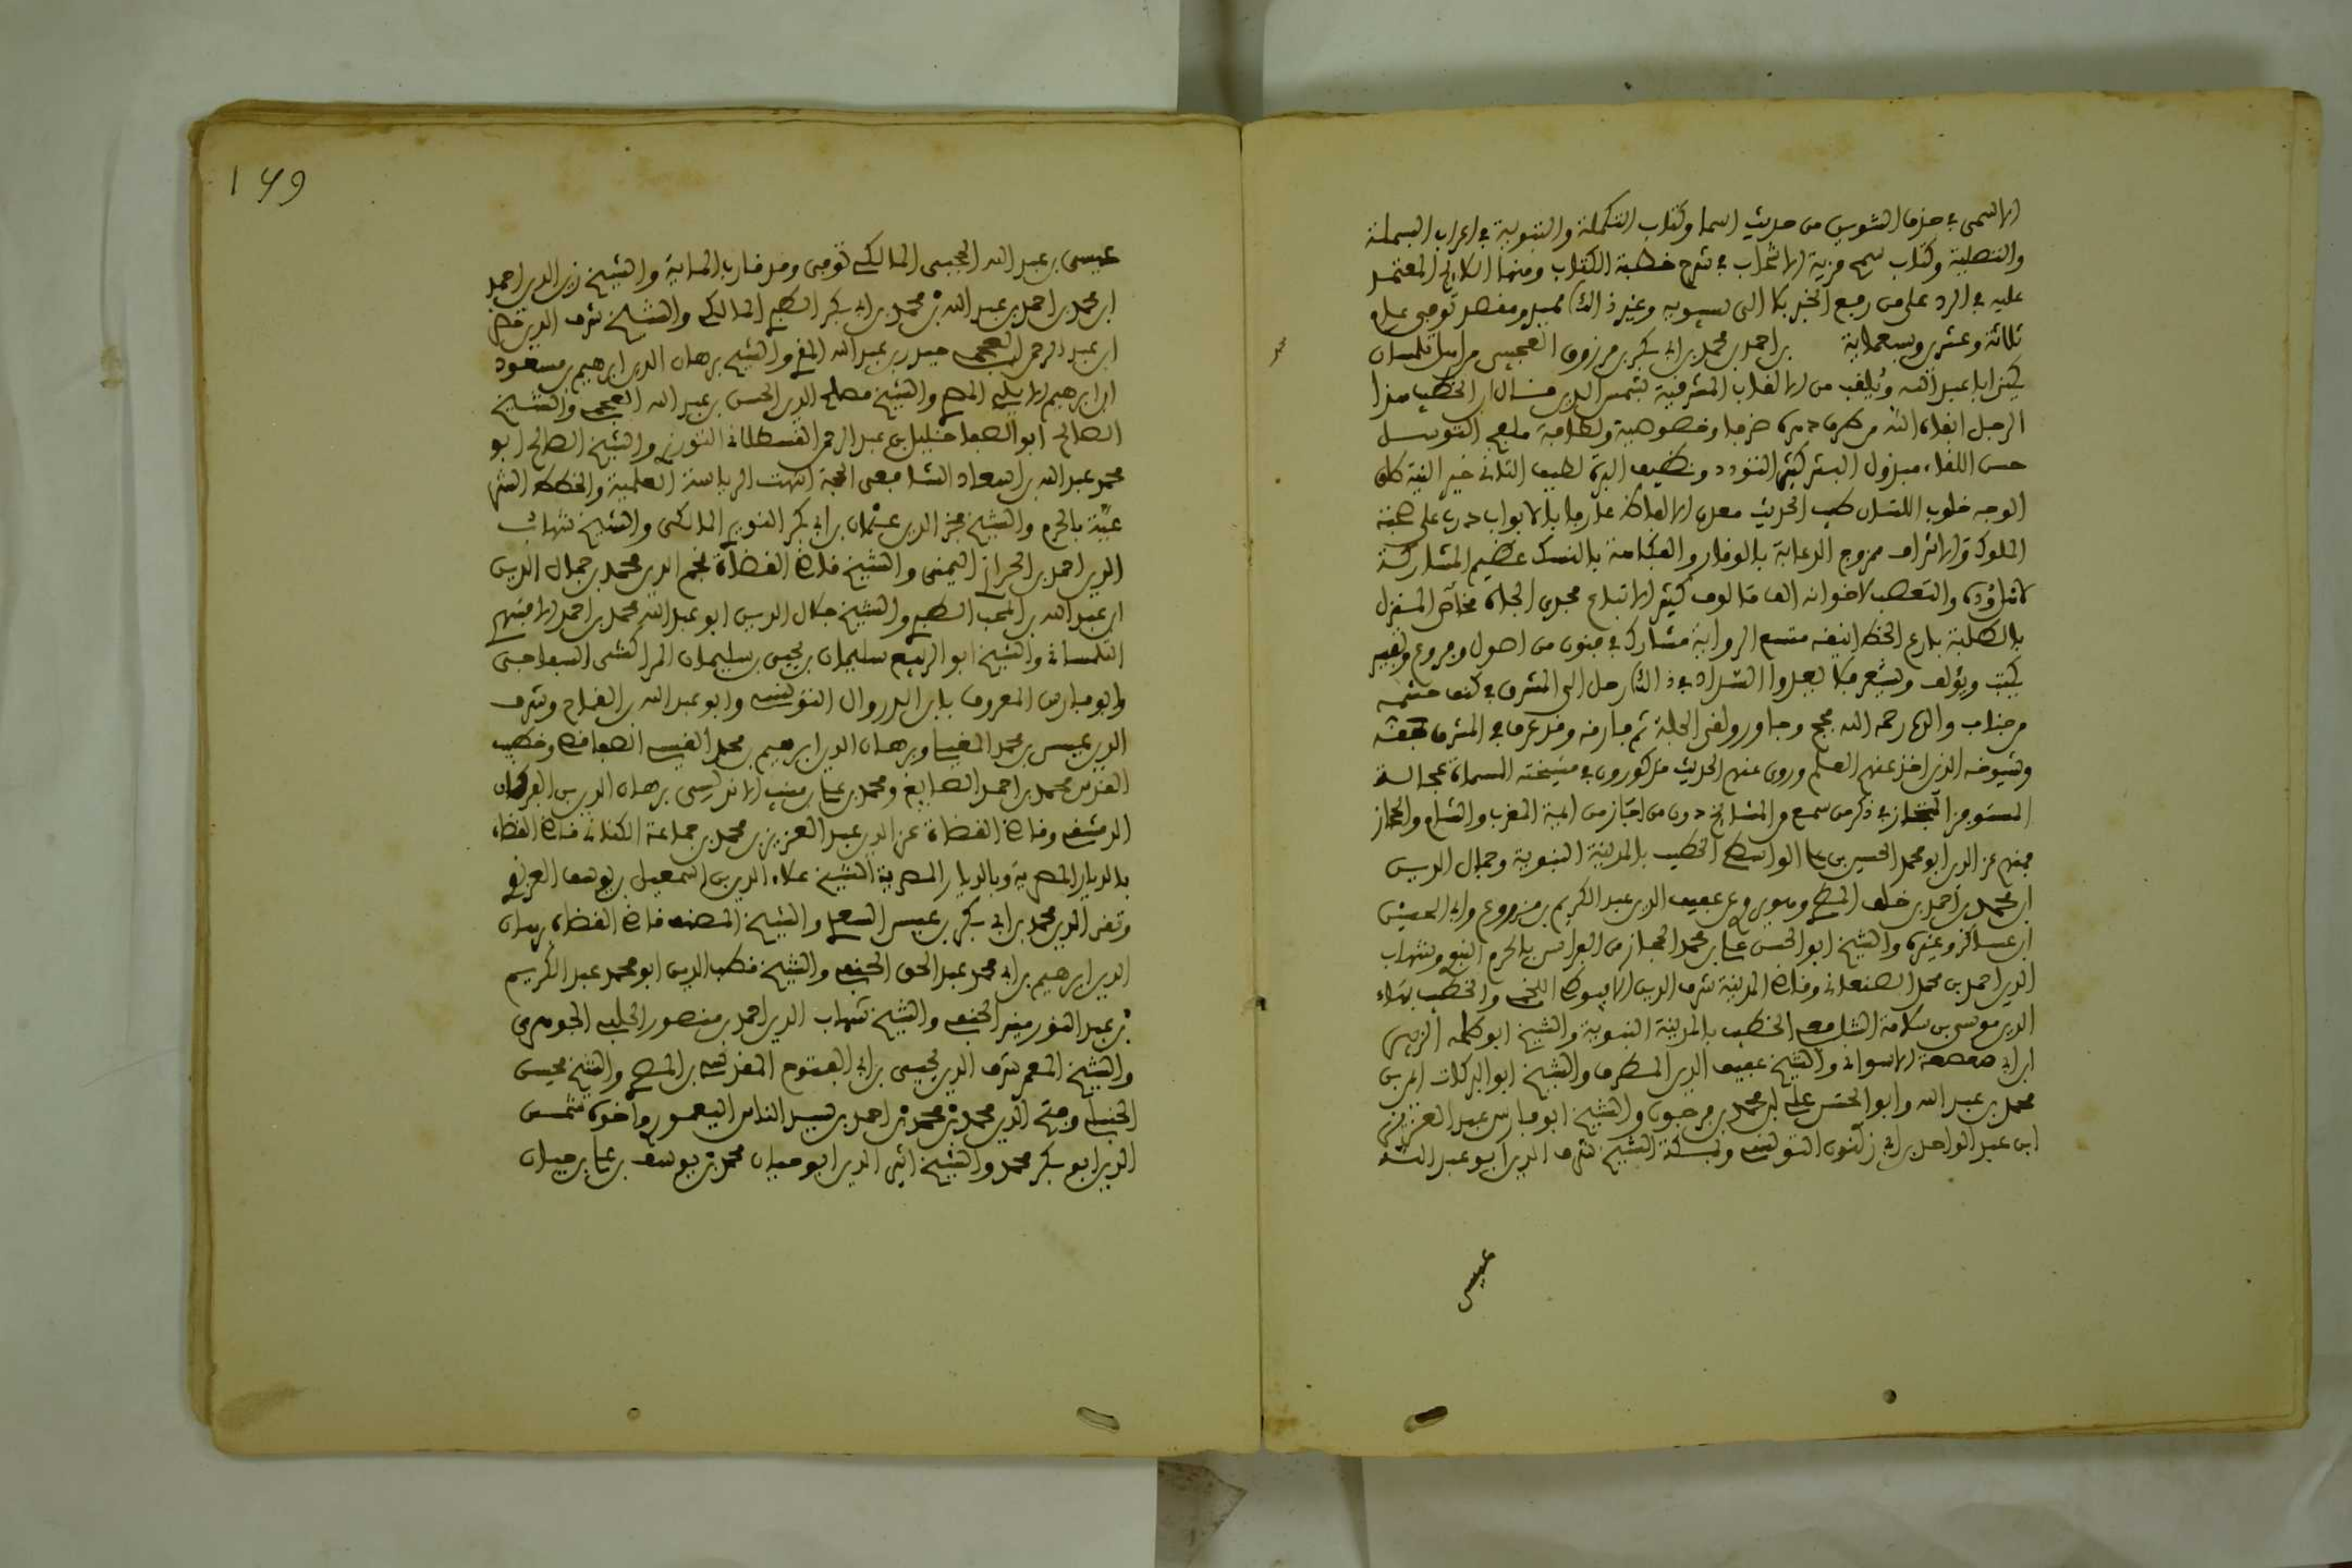 الاسمى في حذف التنوين من حديث اسما وكتاب التكملة والتبوية في اعراب البسملة
والتصلية وكتاب سح مزنة الانتخاب في شرح خطبة الكتاب ومنها اللايح المعتمد
عليه في الرد على من رفع الخبر بلا الى سيبويه وغير ذالك مفيد ومفصد توفي عام
ثلاثة وعشرين وسبعماية بن احمد بن محمد بن ابي بكر بن مرزوق العجيسي من اهل تلمسان
يكنى ابا عبد الله ويلقب من الالقاب المشرقية بشمس الدين قال ابن الخطيب هذا
الرجل ابقاه الله من طرف دهره ظرفا وخصوصية ولطافة مليح التوسل
حسن اللقاء مبذول البشر كثير التودد ونظيف البزة لطيف التاني خير البيت طلق
الوجه خلوب اللسان طيب الحديث مقدر الالفاظ عارف بالابواب درب على صحبة
الملوك والاشراف ممزوج الدعابة بالوقار والفكاهة بالنسك عظيم المشاركة
لاهل وده والتعصب لاخوانه الف مالوف كثير الاتباع مجدي الجاه غاص المنزل
بالطلبة بارع الخط انيقه متسع الرواية مشارك في فنون من اصول وفروع وتفسير
يكتب ويؤلف ويشعر فلا يعدو السداد في ذالك رحل الى المشرق في كنف حشمة
من جناب والده رحمه الله فحج وجاور ولقي الجلة ثم فارقه وقد عرف في المشرق حقه
وشيوخه الذين اخذ عنهم العلم وروى عنهم الحديث مذكورون في مشيخته المسماة عجالة
المستوفز المستجاز في ذكر من سمع من المشايخ دون من اجاز من ايمة المغرب والشام والحجاز
فمنهم عز الدين ابو محمد الحسين بن علي الواسطي الخطيب بالمدينة النبوية وجمال الدين
ابن محمد بن احمد بن خلف المطري وهو يروي عن عفيف الدين عبد الكريم بن مزروع وابي اليمن
ابن عساكر وغيره والشيخ ابو الحسن علي بن محمد الحجار من الفراش بالحرم النبوي وشهاب
الدين احمد بن محمد الصنعاني وقاضي المدينة شرف الدين الاسيوطي اللخمي والخطيب بهاء
الدين موسى بن سلامة الشافعي الخطيب بالمدينة النبوية والشيخ ابو طلحة الزبير
ابن ابي صعصعة الاسواني والشيخ عفيف الدين المطري والشيخ ابو البركات ايمن بن
محمد بن عبد الله وابو الحسن علي بن محمد بن فرحون والشيخ ابو فارس عبد العزيز
ابن عبد الواحد بن ابي زكنون التونسي وبمكة الشيخ شرف الدين ابو عبد الله
عيسى
١٤٩
عيسى بن عبد الله الحجي المالكي توفي وقد قارب الماية والشيخ زين الدين احمد
ابن محمد بن احمد بن عبد الله بن محمد بن ابي بكر الطبري المالكي والشيخ شرف الدين خضر
ابن عبد الرحمن العجمي حيدر بن عبد الله المقري والشيخ برهان الدين ابراهيم بن مسعود
ابن ابرهيم الايلي المصري والشيخ مصلح الدين الحسن بن عبد الله العجمي والشيخ
الصالح ابو الصفا خليل بن عبد الرحمن القسطلاني التوزري والشيخ الصالح ابو
محمد عبد الله بن اسعد الشافعي الحجة انتهت الرياسة العلمية والخطط الشر
عية بالحرم والشيخ فخر الدين عثمان بن ابي بكر النويري المالكي والشيخ شهاب
الدين احمد بن الحرازي اليمني والشيخ قاضي القضاة نجم الدين محمد بن جمال الدين
ابن عبد الله بن المحب الطبري والشيخ جلال الدين ابو عبد الله محمد بن احمد الاقشهري
التلمساني والشيخ ابو الربيع سليمان بن يحيى بن سليمان المراكشي السفاح
وابو فارس المعروف بابن الدروال التونسي وابو عبد الله بن القماح وشرف
الدين عيسى بن محمد المغيلي وبرهان الدين ابرهيم بن محمد القيسي الصفاقسي وخطيب
القدس محمد بن احمد الصايغ ومحمد بن علي بن مثبت الاندلسي برهان الدين بن الفركاح
الدمشقي وقاضي القضاة عز الدين عبد العزيز بن محمد بن جماعة الكناني قاضي القضاة
بالديار المصرية وبالديار المصرية الشيخ علاء الدين اسمعيل بن يوسف القونوي
وتقي الدين محمد بن ابي بكر بن عيسى السعدي والشيخ المصنف قاضي القضاة برهان
الدين ابرهيم بن ابي محمد عبد الحق الحنفي والشيخ قطب الدين ابو محمد عبد الكريم
بن عبد النور منير الحنفي والشيخ شهاب الدين احمد بن منصور الحلبي الجوهري
والشيخ المعمر شرف الدين يحيى بن ابي الفتوح المقدسي بن المصري والشيخ محيي
الحنبلي وفتح الدين محمد بن محمد بن احمد بن سيد الناس اليعمري واخوه شمس
الدين ابو بكر محمد والشيخ اثير الدين ابو حيان محمد بن يوسف بن علي بن حيان